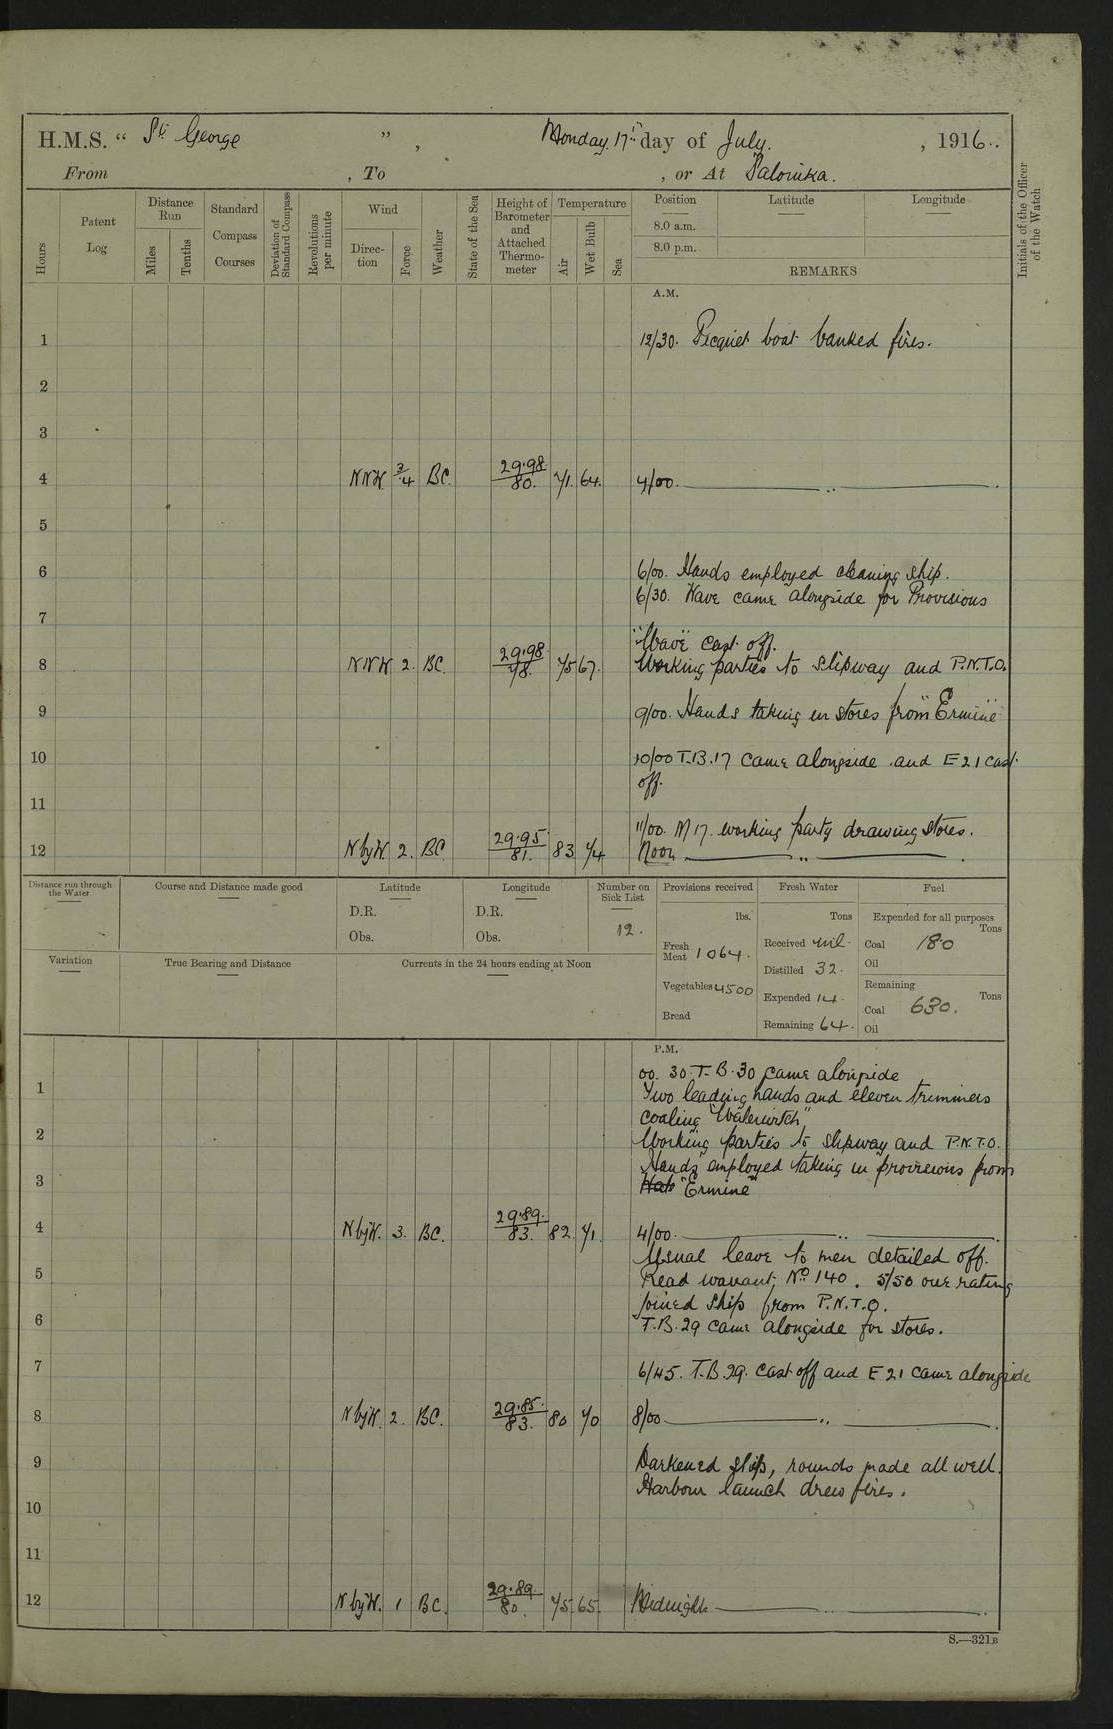 H.M.S. “ St George ” , Monday 17th day of July. , 1916..
From , To , or At Salonika.
Hours
Patent Log
Distance Run
Miles
Tenths
Standard Compass Courses
Deviation of Standard Compass
Revolutions per minute
Wind
Direc- tion
Force
Weather
State of the Sea
Height of Barometer and Attached Thermo- meter
Temperature
Air
Wet Bulb
Sea
Position
8.0 a.m.
8.0 p.m.
Latitude
Longitude
REMARKS
Initials of the Officer of the Watch
A.M.
1 12/30. Picquet boat banked fires.
2
3
4 NNW. 3/4 BC. 29.98 80. 71. 64. 4/00. ..
5
6 6/00. Hands employed cleaning ship.
6/30. Wave came alongside for Provisions
7
"Wave" cast off.
8 NNW 2. BC. 29.98 78. 75 67. Working parties to slipway and P.N.T.O.
9 9/00. Hands taking in stores from "Ermine"
10 10/00 T.B.17 came alongside and E21 cast
off.
11
11/00. M17. working party drawing stores.
12 N by W. 2. BC. 29.95 81. 83 74 Noon ..
Distance run through the Water
Course and Distance made good
Latitude
D.R.
Obs.
Longitude
D.R.
Obs.
Number on Sick List
12.
Provisions received
lbs.
Fresh Meat 1064.
Vegetables 4500
Bread
Fresh Water
Tons
Received nil.
Distilled 32.
Expended 14.
Remaining 64.
Fuel
Expended for all purposes
Tons
Coal 180
Oil
Remaining
Tons
Coal 630.
Oil
Variation
True Bearing and Distance
Currents in the 24 hours ending at Noon
P.M.
00. 30. T.B.30 came alongside
1 Two leading hands and eleven trimmers
coaling "Waterwitch"
2 Working parties to slipway and P.N.T.O.
Hands employed taking in provisions from
3 "Ermine"
4 N by W. 3. BC. 29.89. 83. 82. 71. 4/00. ..
Usual leave to men detailed off.
5 Read warrant No 140. 5/50 one rating
joined ship from P.N.T.O.
6 T.B.29 came alongside for stores.
7 6/45. T.B.29. cast off and E21 came alongside
8 N by W. 2. BC. 29.85. 83. 80 70 8/00 ..
9 Darkened ship, rounds made all well.
Harbour launch drew fires.
10
11
12 N by W. 1 BC. 29.89. 80. 75. 65. Midnight ..
S.—321B